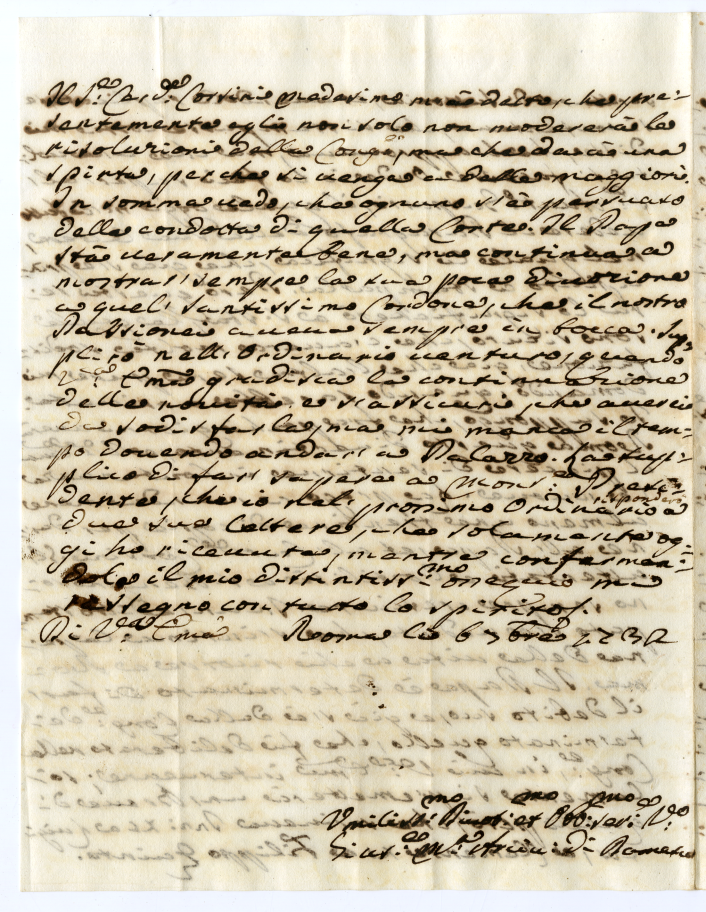 Il S.r Card.le Corsini medesimo mi à detto, che pre-
sentemente egli non solo non modererà le
risoluzioni della Cong.e, ma che darà una
spinta, perche si venga a delle maggiori.
In somma vedo, che ognuno stà persuaso
della condotta di quella Corte. Il Papa
stà veramente bene, ma continua a
mostrarsi sempre la sua poca divozione
a quel santissimo Cordone, che il nostro
Passionei aveva sempre in bocca. Sup-
plirò nell'Ordinario venturo, quando
V.ra Em.a gradisca la continuazione
delle novità e s'assicuri, che averei
da sodisfarla, ma mi manca il tem-
po dovendo andarsi a Palazzo. La sup-
plico di farsi sapere a Mons.r Presi-
dente, che io nel prossimo Ordinario risponderò a
due sue lettere, che solamente og-
gi ho ricevute, mentre confermen-
dole il mio distintiss.mo ossequio mi
rassegno con tutto lo spirito.
Di V.ra Em.a Roma li 6 7bre 1732
Umiliss.mo Divot.mo et Obb.mo Ser.e V.o